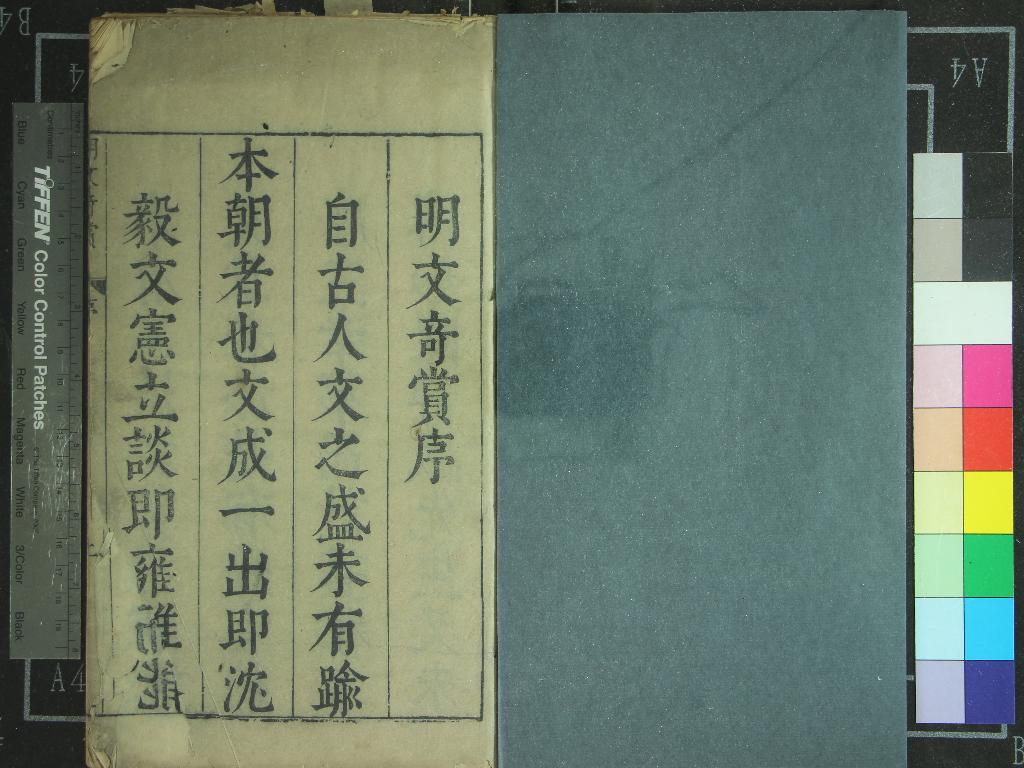 明文奇賞序
自古人文之盛未有踰
本朝者也文成一出即沈
毅文憲立談即雍雍
TIFFEN Color Control Patches
Blue Cyan Green Yellow Red Magenta White 3/Color Black
Centimetres
A4
A4